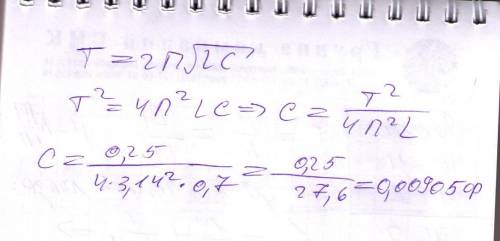 T = 2П√LC
T² = 4П²LC => C = T² / 4П²L
C = 0,25 / 4·3,14²·0,7 = 0,25 / 27,6 = 0,00905ф